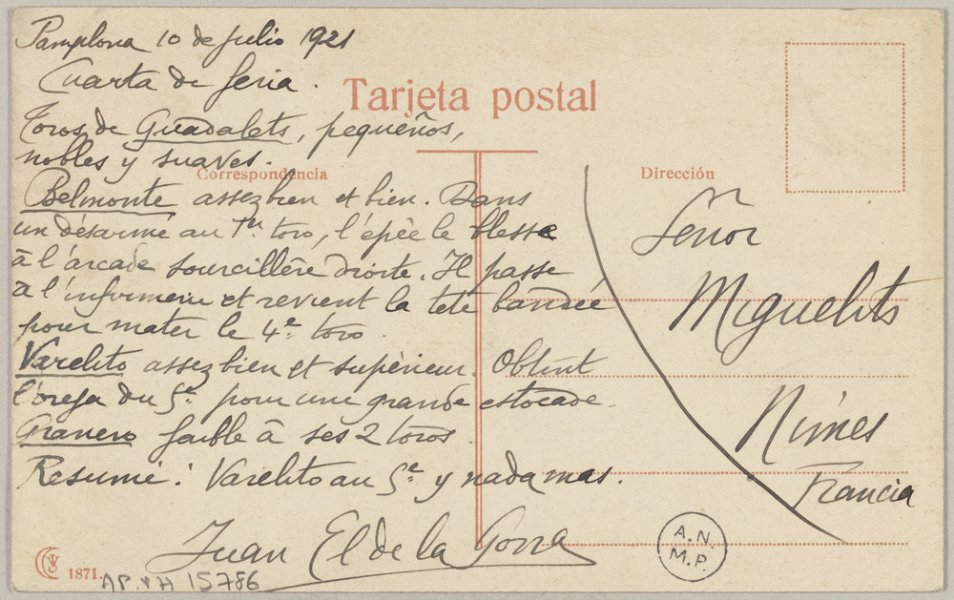 Pamplona 10 de julio 1921
Cuarta de feria.
Tarjeta postal
Toros de Guadalets, pequeños,
nobles y suaves.
Correspondencia
Belmonte assez bien et bien. Dans
un désarmé au 1er toro, l'épée le blesse
à l'arcade sourcillère droite. Il passe
à l'infirmerie et revient la tete bandée
pour mater le 4e toro.
Varelito assez bien et supérieur. Obtint
l'oreja du 5e pour une grande estocade.
Granero faible à ses 2 toros.
Resumé : Varelito au 5e y nada mas.
Juan El de la Gorra
Dirección
Señor
Miguelito
Nimes
Francia
A.N.
M.P.
1871.
AP.PH 15786